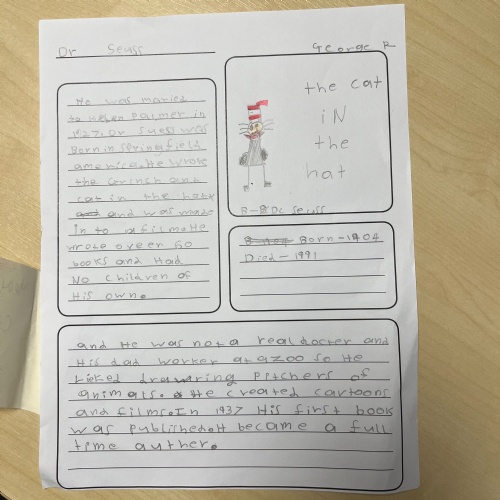 Dr Seuss
George R
He was maried
to Helen Palmer in
1927. Dr Suess was
Born in springfield
america. He wrote
the Grinch and
cat in the hat
and was made
in to a film. He
wrote oveer 60
books and Had
No children of
His own.
the cat
iN
the
hat
B-B Dc Seuss
Born-1904
Died-1991
and He was not a real docter and
His dad worker at a zoo so He
Licked drawring pitchers of
animals. He created cartoons
and films. In 1937 His first book
was published. It became a full
time auther.